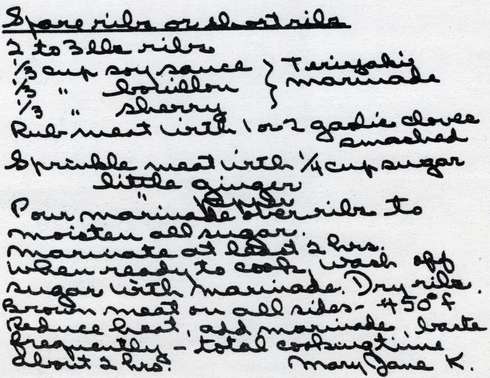 Spareribs or shortribs
2 to 3 lbs ribs
1/3 cup soy sauce } Teriyaki
1/3 " bouillon } marinade
1/3 " sherry
Rub meat with 1 or 2 garlic cloves
smashed
Sprinkle meat with 1/4 cup sugar
little ginger
" pepper
Pour marinade over ribs to
moisten all sugar.
marinate at least 2 hrs.
when ready to cook, wash off
sugar with marinade. Dry ribs.
Brown meat on all sides - 450° f
Reduce heat, add marinade, baste
frequently - total cooking time
about 2 hrs.
Mary Jane K.